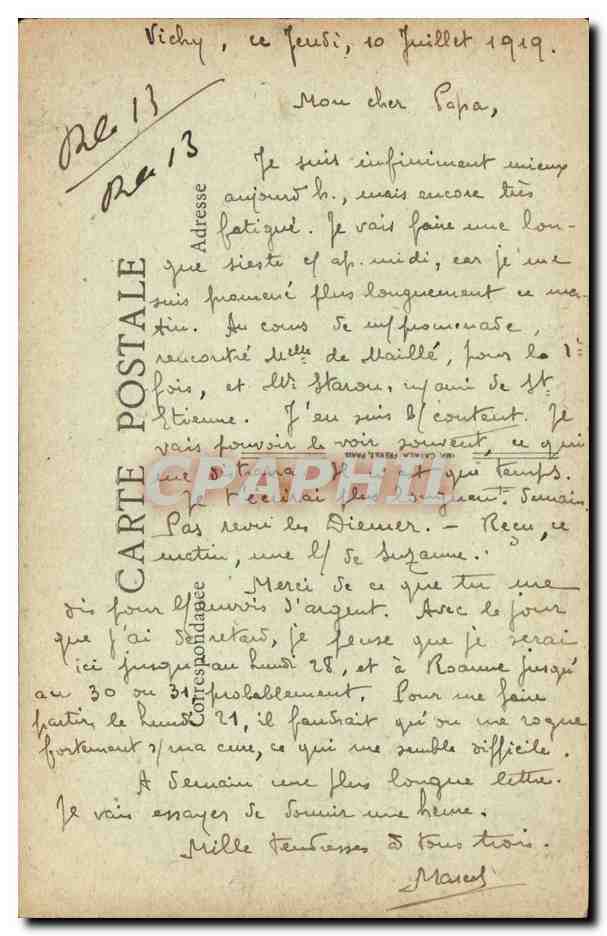 Vichy, ce Jeudi, 10 Juillet 1919.
13
13
Mon cher Papa,
Je suis infiniment mieux
aujourd h., mais encore très
fatigué. Je vais faire une lon-
gue sieste c/ ap. midi, car je me
suis promené plus longuement ce ma-
tin. Au cours de m/promenade,
rencontré Melle de Maillé, pour la 1è
fois, et Mr Staron, m/ami de St
Etienne. J'en suis b/ content. Je
vais pouvoir le voir souvent, ce qui
me
que temps.
Je t'écrirai plus longuemt. demain.
Pas revu les Diemer. - Reçu, ce
matin, une l/ de Suzanne.
Merci de ce que tu me
dis pour l/envois d'argent. Avec le jour
que j'ai de retard, je pense que je serai
ici jusqu'au Lundi 28, et à Roanne jusqu'
au 30 ou 31, probablement. Pour me faire
partir, le Lundi 21, il faudrait qu'on me rogne
fortement s/ma cure, ce qui me semble difficile.
A demain une plus longue lettre.
Je vais essayer de dormir une heure.
Mille tendresses à tous trois.
Marcel
CARTE POSTALE
Adresse
Correspondance
IMP. CATALA FRERES, PARIS
CPARAMA